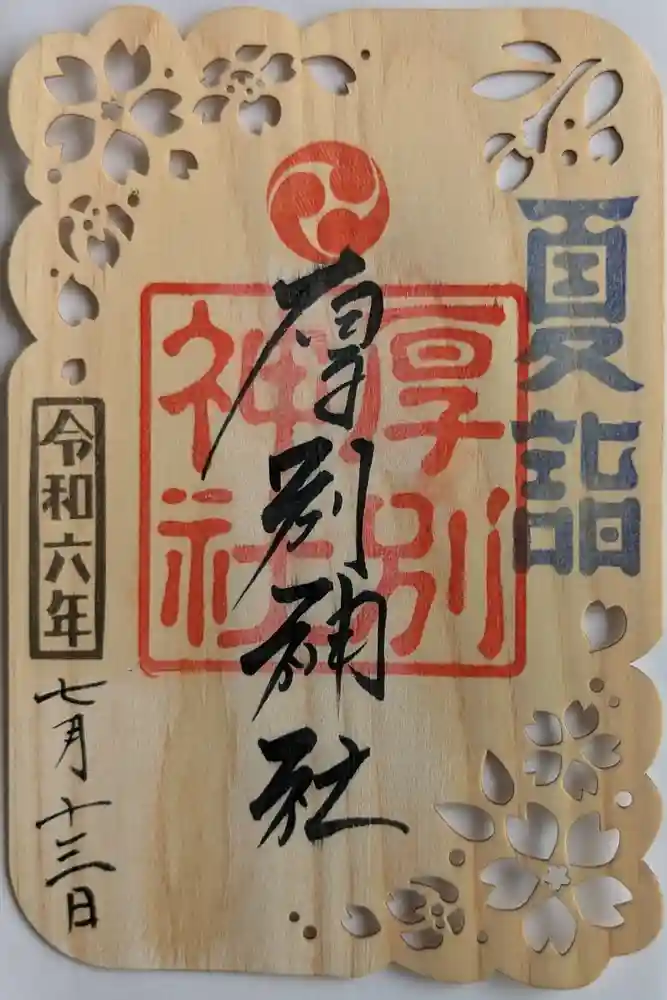 夏詣
厚別
神社
厚別神社
令和六年
七月十三日